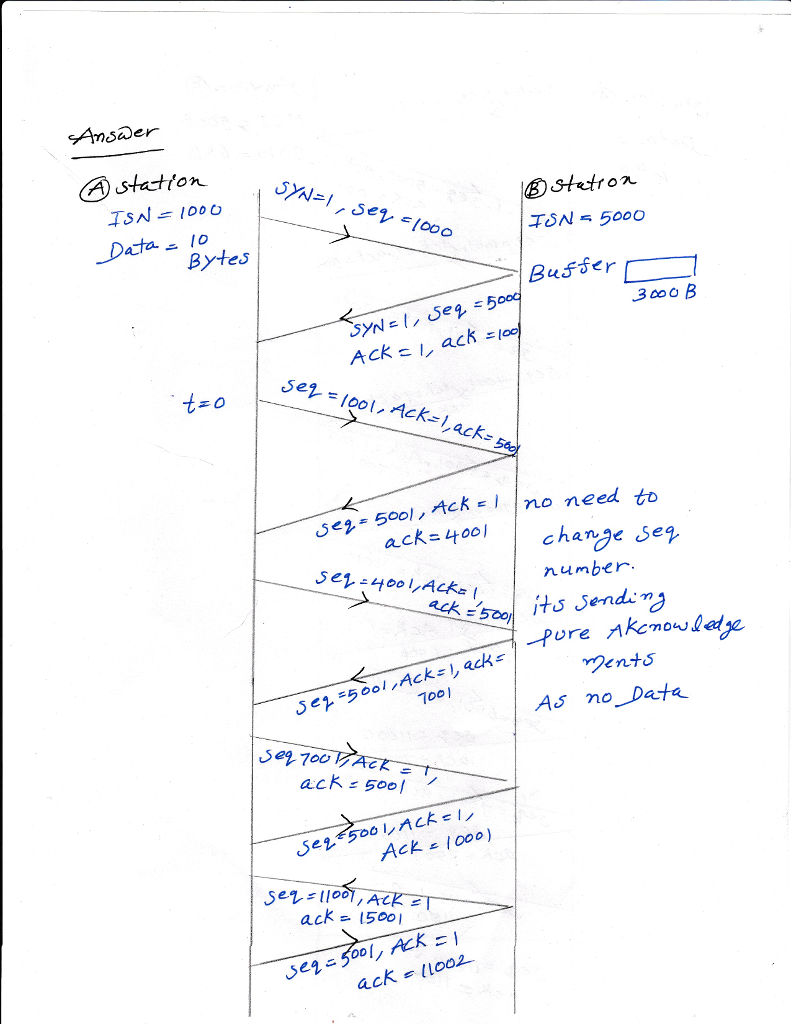 Answer
Ⓐ station
ISN = 1000
Data = 10
Bytes
SYN=1, seq =1000
Ⓑ Station
ISN = 5000
Buffer
3000 B
SYN=1, seq =5000
ACK = 1, ack =1001
t=0
seq =1001, ACK=1, ack= 5001
seq = 5001, ACK = 1
ack=4001
no need to
change seq
number.
its sending
pure AKcnowledge
ments
As no Data
seq =4001, ACK= 1,
ack =5001
seq =5001, Ack=1, ack=
7001
seq 7001, ACK = 1,
ack = 5001
seq =5001, ACK=1,
ACK = 10001
seq =11001, ACK =1
ack = 15001
seq = 5001, ACK =1
ack = 11002